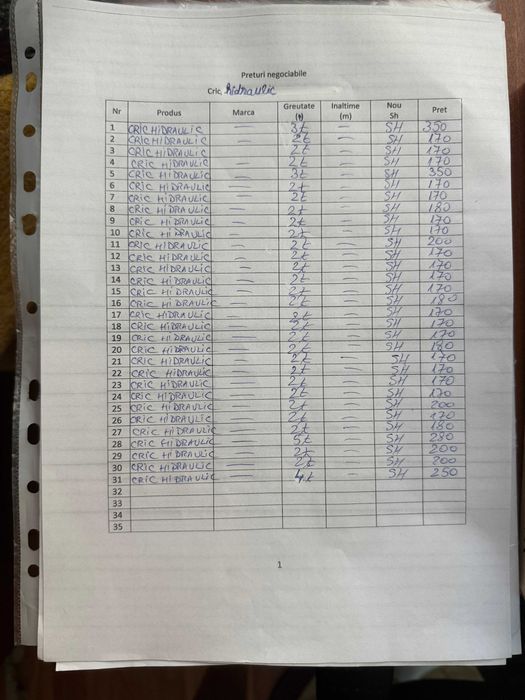 Preturi negociabile
Cric hidraulic
Nr Produs Marca Greutate (t) Inaltime (m) Nou Sh Pret
1 CRIC HIDRAULIC — 3t — SH 350
2 CRIC HIDRAULIC — 2t — SH 170
3 CRIC HIDRAULIC 2t — SH 170
4 CRIC HIDRAULIC — 2t — SH 170
5 CRIC HIDRAULIC 3t — SH 350
6 CRIC HIDRAULIC — 2t — SH 170
7 CRIC HIDRAULIC — 2t — SH 170
8 CRIC HIDRAULIC — 2t — SH 180
9 CRIC HIDRAULIC — 2t — SH 170
10 CRIC HIDRAULIC — 2t — SH 170
11 CRIC HIDRAULIC — 2t — SH 200
12 CRIC HIDRAULIC — 2t — SH 170
13 CRIC HIDRAULIC — 2t — SH 170
14 CRIC HIDRAULIC — 2t — SH 170
15 CRIC HIDRAULIC — 2t — SH 170
16 CRIC HIDRAULIC — 2t — SH 180
17 CRIC HIDRAULIC — 2t — SH 170
18 CRIC HIDRAULIC — 2t — SH 170
19 CRIC HIDRAULIC — 2t — SH 170
20 CRIC HIDRAULIC — 2t — SH 180
21 CRIC HIDRAULIC — 2t — SH 170
22 CRIC HIDRAULIC — 2t — SH 170
23 CRIC HIDRAULIC — 2t — SH 170
24 CRIC HIDRAULIC — 2t — SH 170
25 CRIC HIDRAULIC — 2t — SH 200
26 CRIC HIDRAULIC — 2t — SH 170
27 CRIC HIDRAULIC — 2t — SH 180
28 CRIC HIDRAULIC — 5t — SH 280
29 CRIC HIDRAULIC — 2t — SH 200
30 CRIC HIDRAULIC — 2t — SH 200
31 CRIC HIDRAULIC — 4t — SH 250
32
33
34
35
1